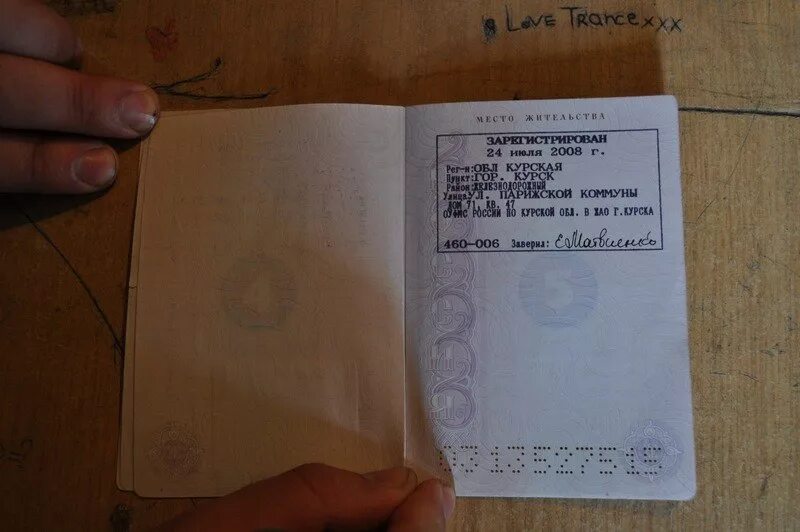 I Love Trance xxx
МЕСТО ЖИТЕЛЬСТВА
ЗАРЕГИСТРИРОВАН
24 июля 2008 г.
Рег-н: ОБЛ КУРСКАЯ
Пункт: ГОР. КУРСК
Район: ЖЕЛЕЗНОДОРОЖНЫЙ
Улица: УЛ. ПАРИЖСКОЙ КОММУНЫ
ДОМ 71, КВ. 47
ОУФМС РОССИИ ПО КУРСКОЙ ОБЛ. В ЖАО Г.КУРСКА
460-006 Заверил: Е.Матвиенко
4
5